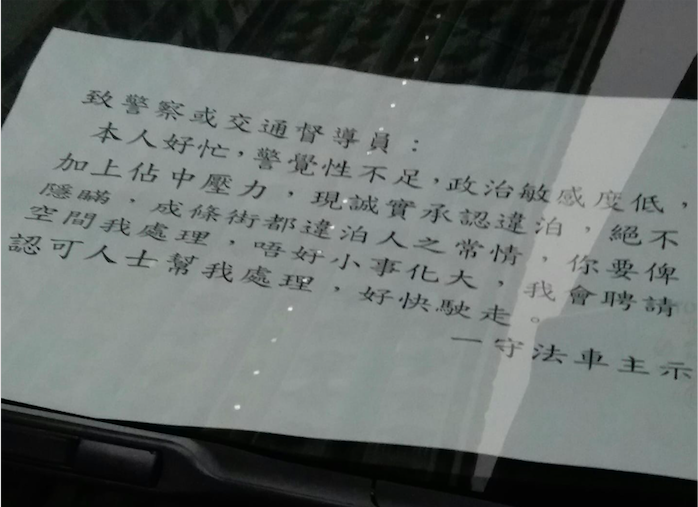 致警察或交通督導員：
本人好忙，警覺性不足，政治敏感度低，
加上佔中壓力，現誠實承認違泊，絕不
隱瞞，成條街都違泊人之常情，你要俾
空間我處理，唔好小事化大，我會聘請
認可人士幫我處理，好快駛走。
一守法車主示